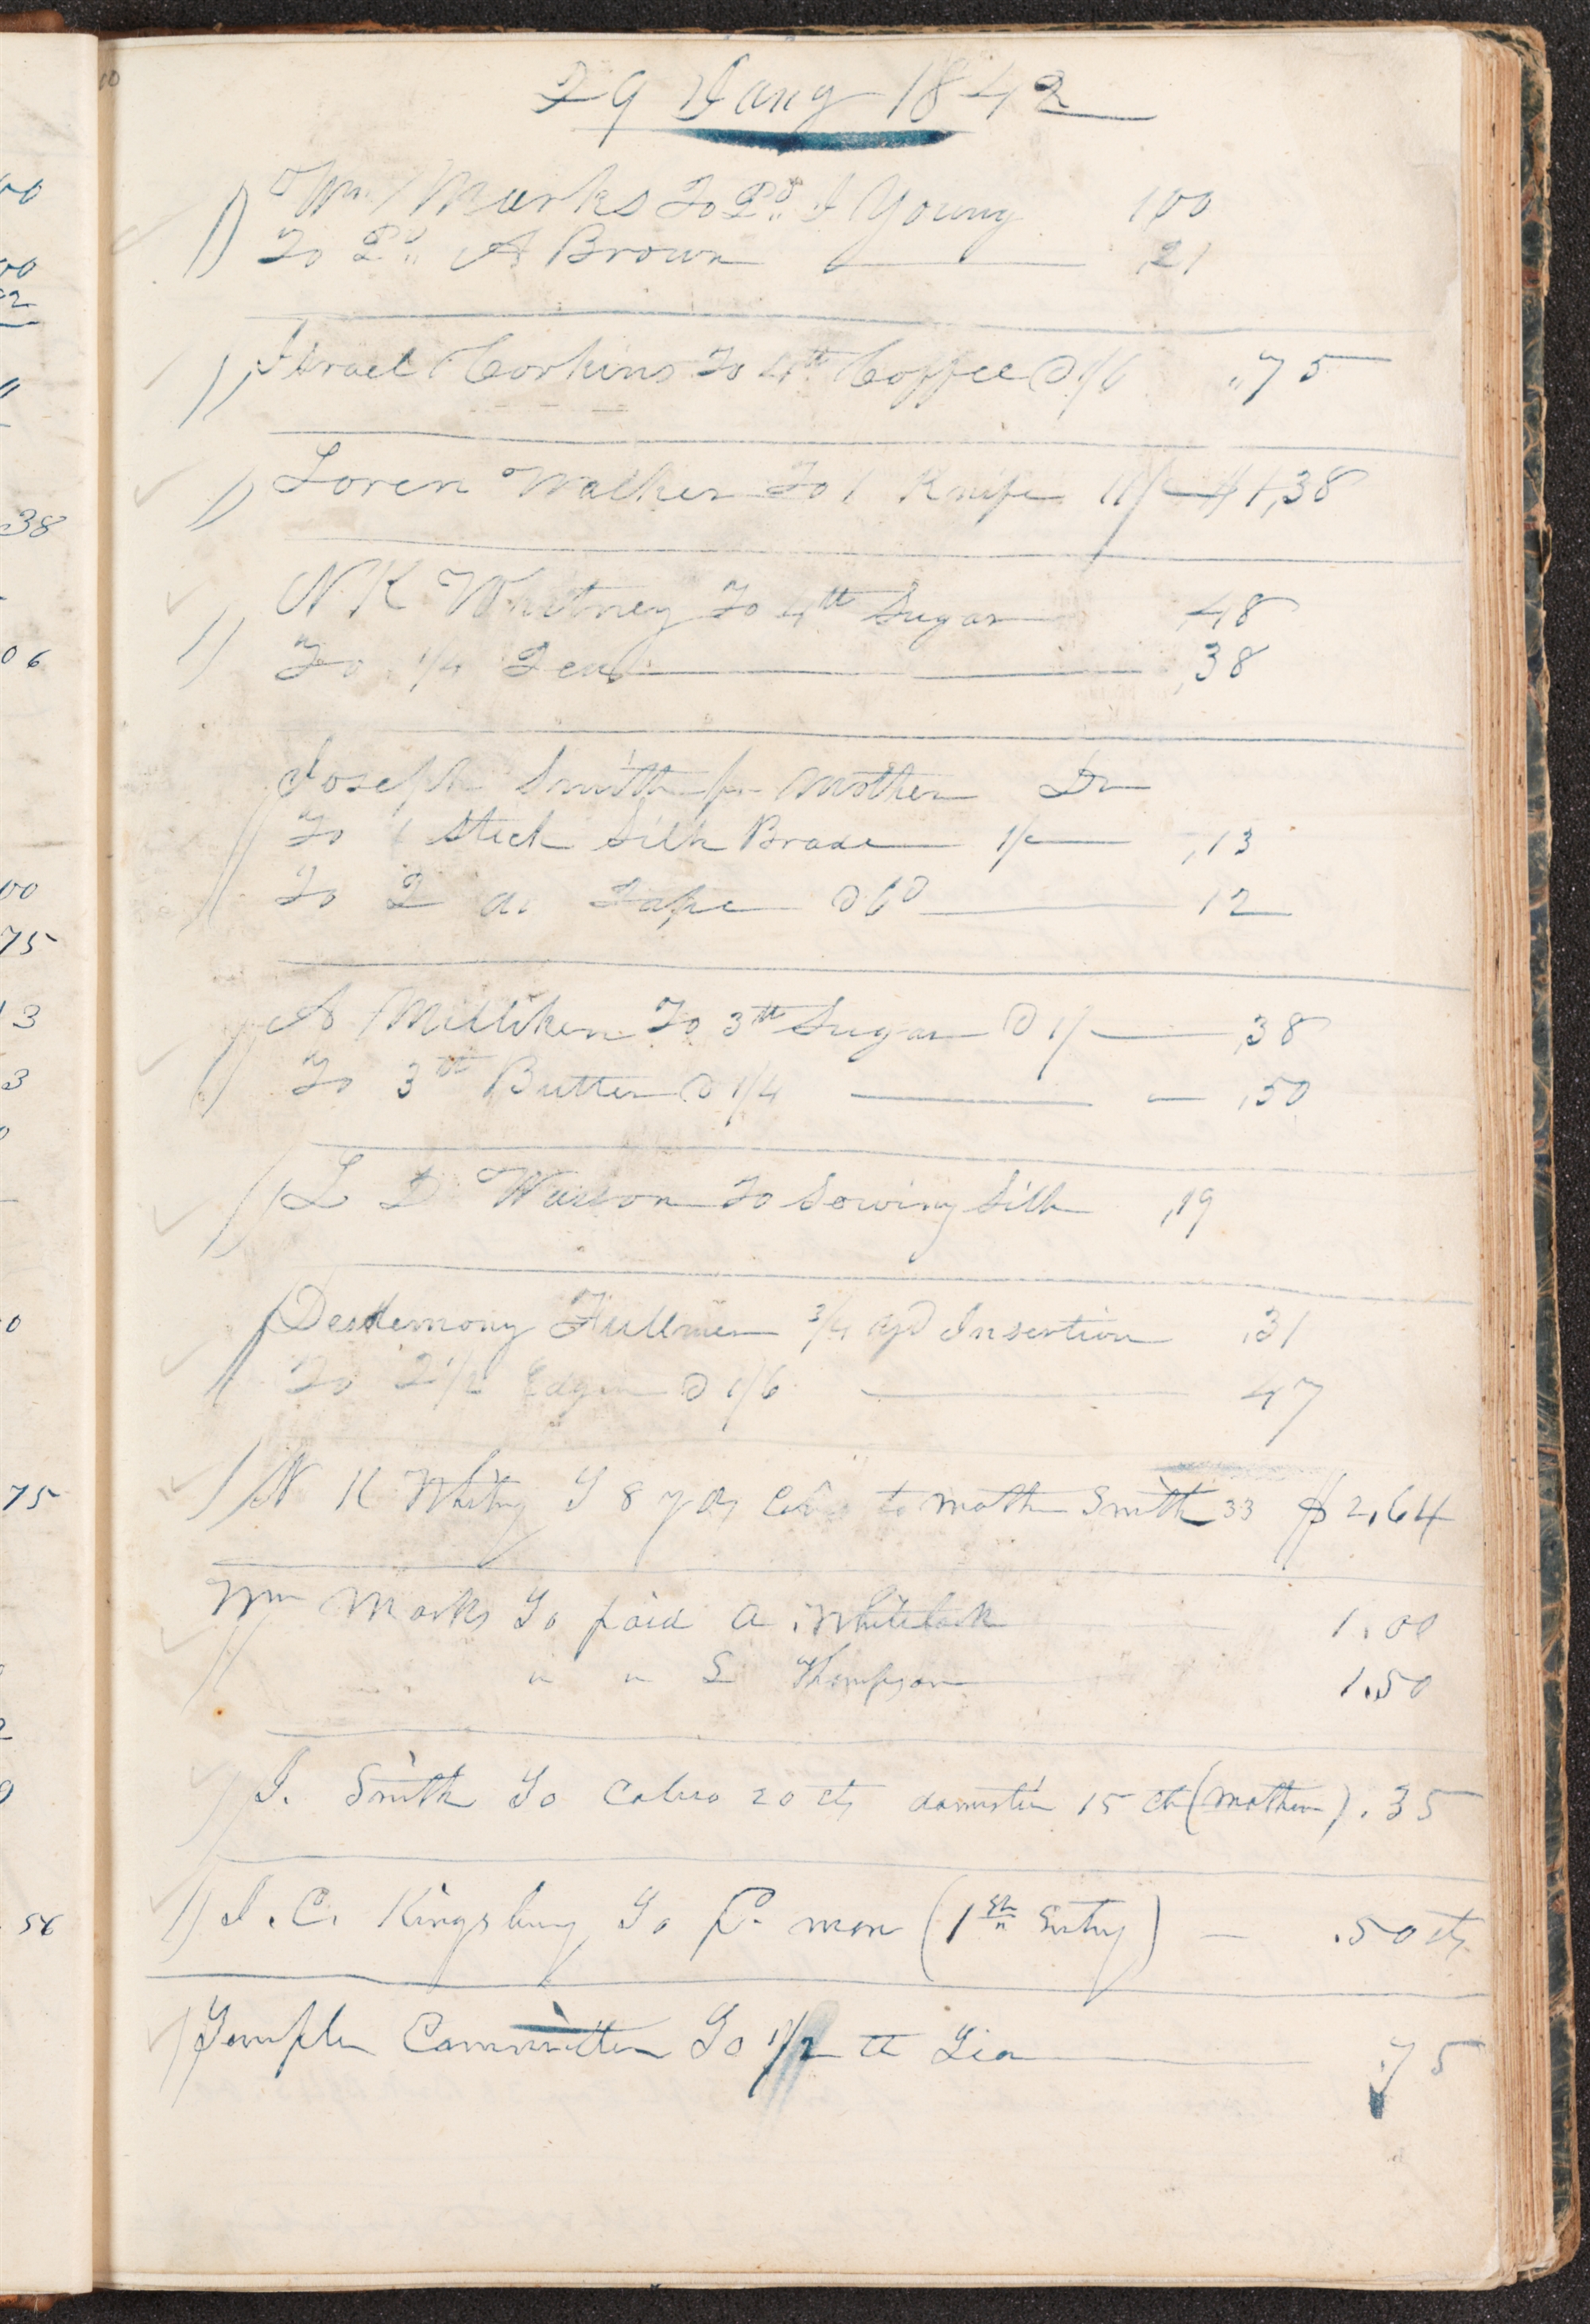 29 Jany 1842
Wm Marks To Pd I Young 1,00
To Pd A Brown ,21
Israel Corkins To 4 tt Coffee @ 1/6 ,75
Loren Walker To 1 Knife 11/- $1,38
N K Whitney To 4 tt Sugar ,48
To 1/4 Tea ,38
Joseph Smith pr Mother Dr
To 1 Stick Silk Brade 1/- ,13
To 2 Tape @ 6d 12
A Milliken To 3 tt Sugar @ 1/- ,38
To 3 tt Butter @ 1/4 ,50
L D Wasson To Sowing Silk ,19
Desdemony Fullmer 3/4 yd Insertion ,31
To 2 1/2 Edgin @ 1/6 47
N K Whitny To 8 yds to Moth Smith 33 $2,64
Wm Marks To paid A. Whitlock 1.00
" " S Thompson 1.50
J. Smith To Calico 20 cts domestic 15 ct (Mother) .35
J. C. Kingsbury To P. mon (1st Entry) — .50 cts
Temple Committee To 1/2 tt Tea .75
00
00
2
38
06
00
75
13
3
0
75
56